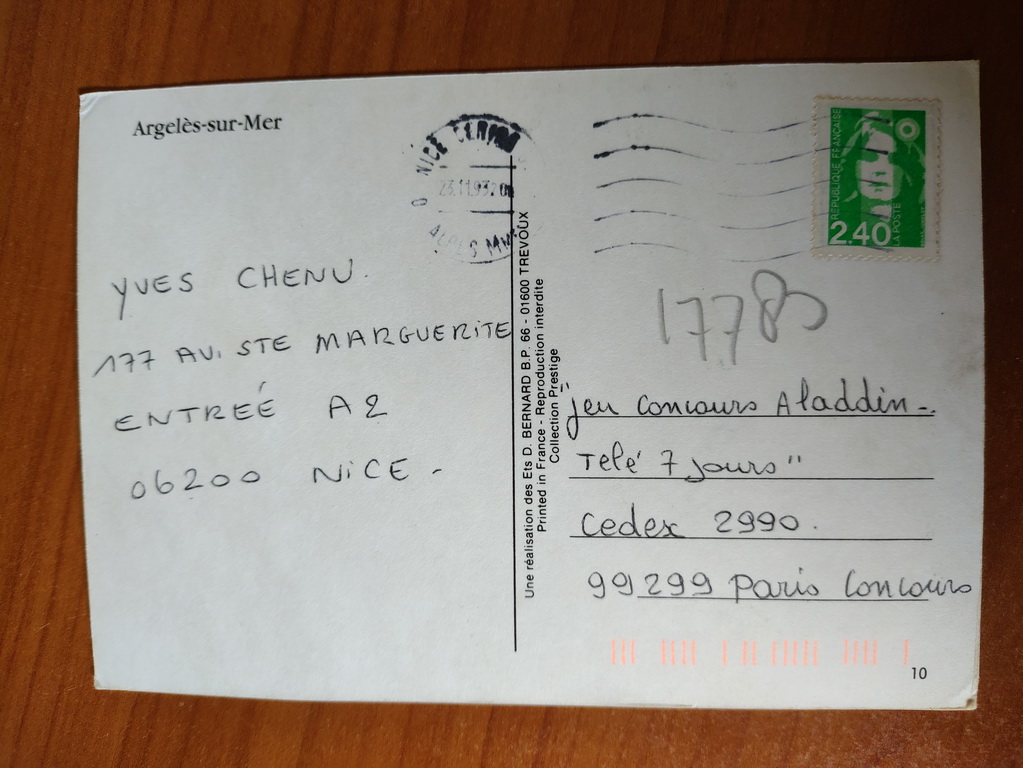 Argelès-sur-Mer
NICE
23.11.93
RÉPUBLIQUE FRANÇAISE
2.40
LA POSTE
YVES CHENU.
177 AV. STE MARGUERITE
ENTREÉ A2
06200 NICE -
Une réalisation des Ets D. BERNARD B.P. 66 - 01600 TREVOUX
Printed in France - Reproduction interdite
Collection Prestige
"jeu concours Aladdin -
Telé 7 jours"
Cedex 2990.
99299 Paris Concours
10